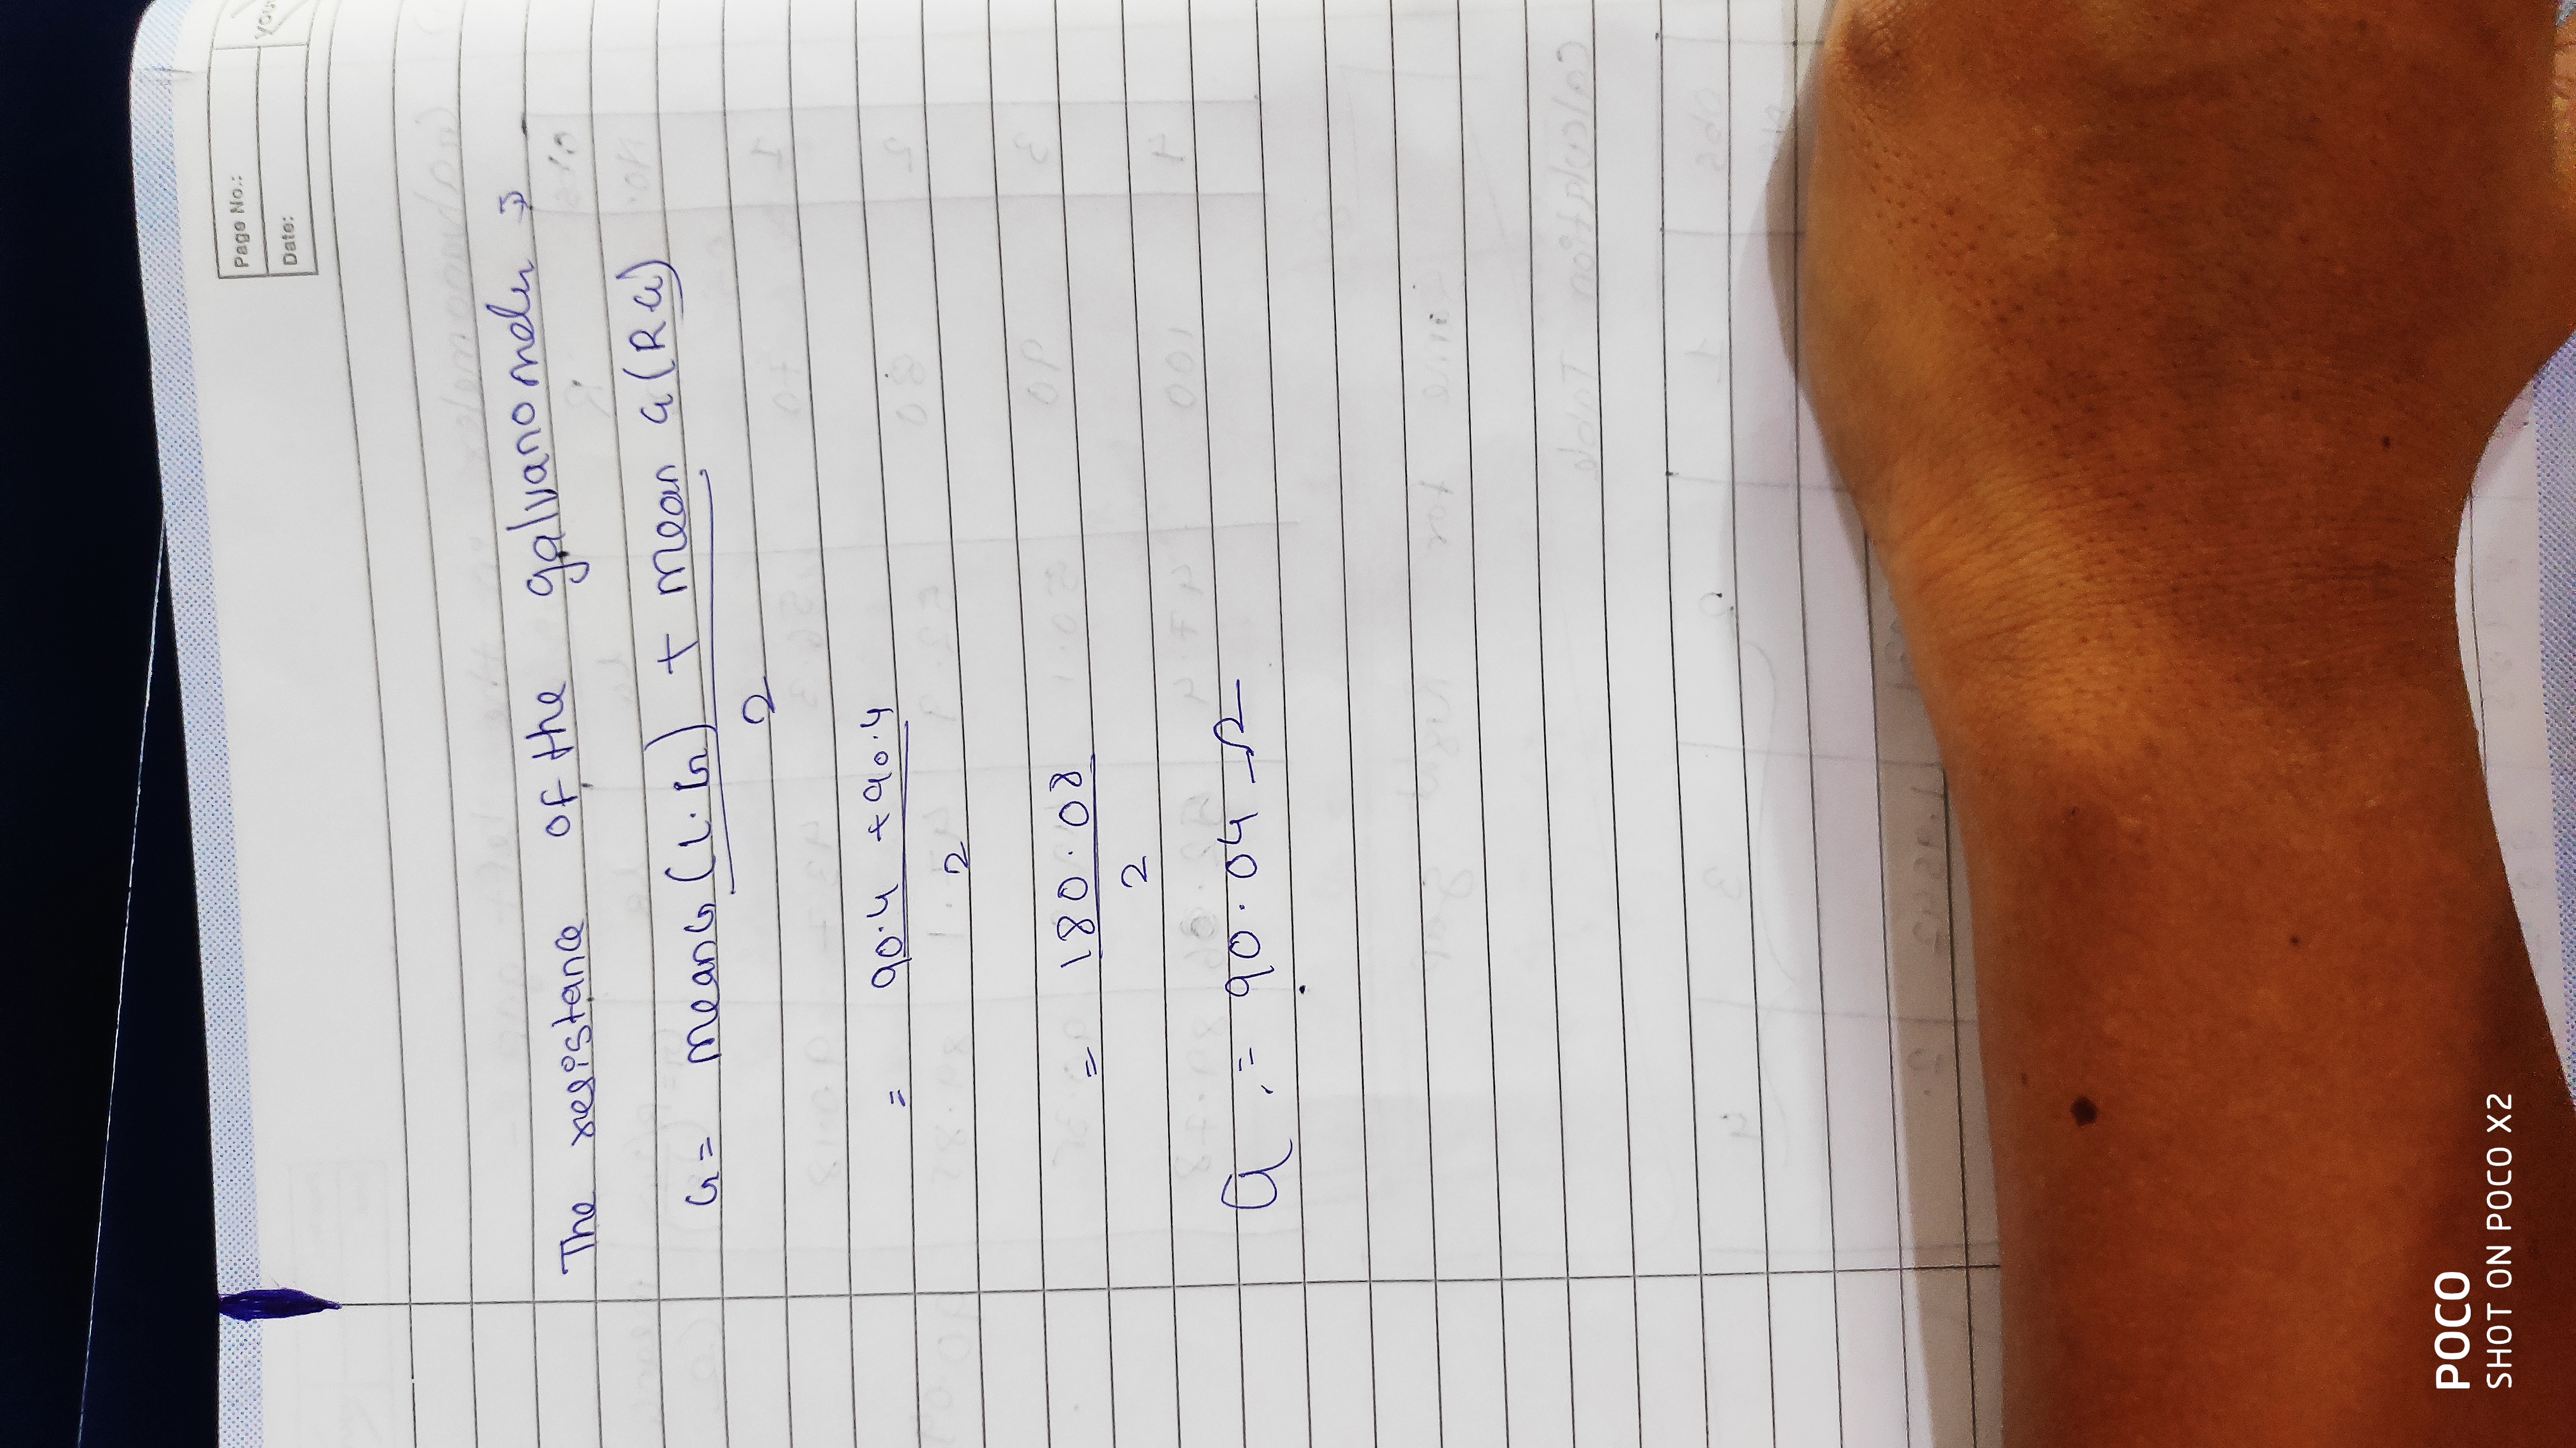 Page No.:
Date:
The resistance of the galvanometer →
G = mean G (L.G) + mean G (R.G)
2
= 90.4 + 90.4
2
= 180.08
2
G = 90.04 Ω
Calculation Table
POCO
SHOT ON POCO X2